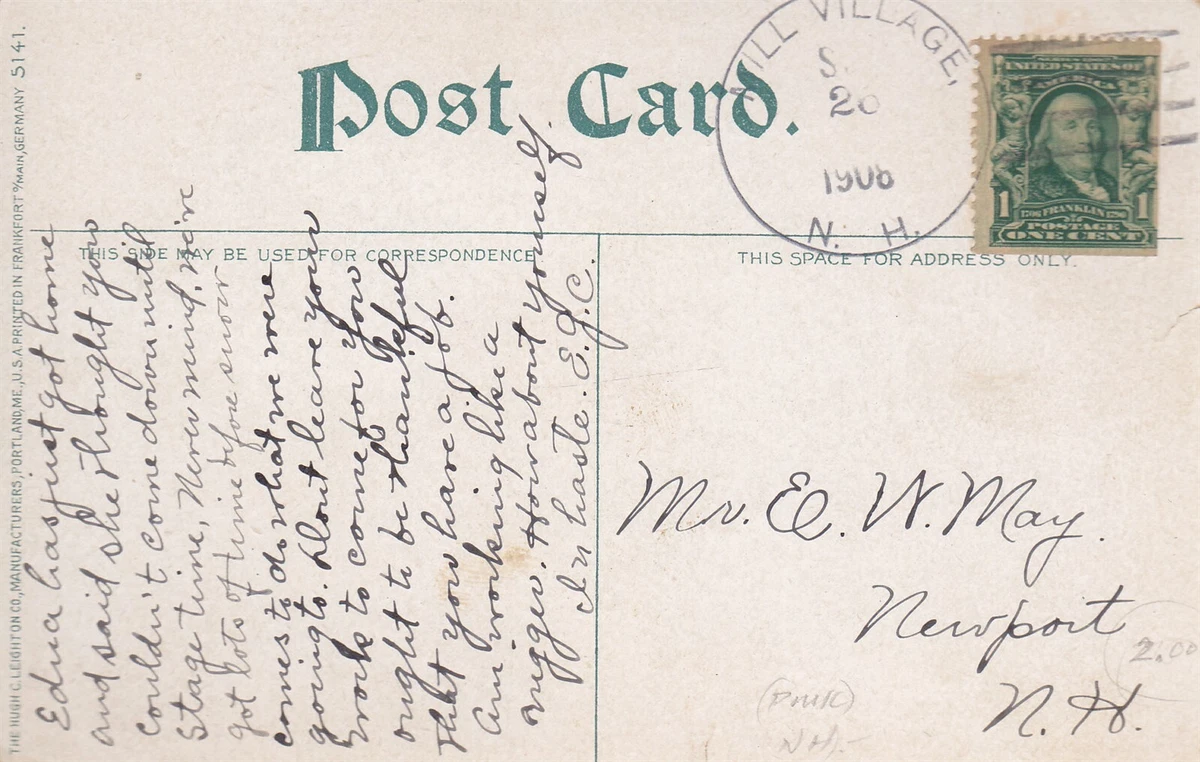 THE HUGH C. LEIGHTON CO., MANUFACTURERS, PORTLAND, ME., U.S.A. PRINTED IN FRANKFORT o/MAIN, GERMANY 5141.
Post Card.
MILL VILLAGE,
20
1906
N. H.
UNITED STATES OF
1 FRANKLIN 1
POSTAGE
ONE CENT
THIS SIDE MAY BE USED FOR CORRESPONDENCE
THIS SPACE FOR ADDRESS ONLY.
Edna has just got home
and said she thought you
couldn't come down until
Stage time, Never mind, we're
got lots of time before snow
comes to do what we were
going to. Dont leave your
work to come for you
ought to be thankful
that you have a job.
Am working like a
nigger. How about yourself
In haste. E.J.C.
Mr. E. W. May.
Newport
N. H.
2.00
N.H.-